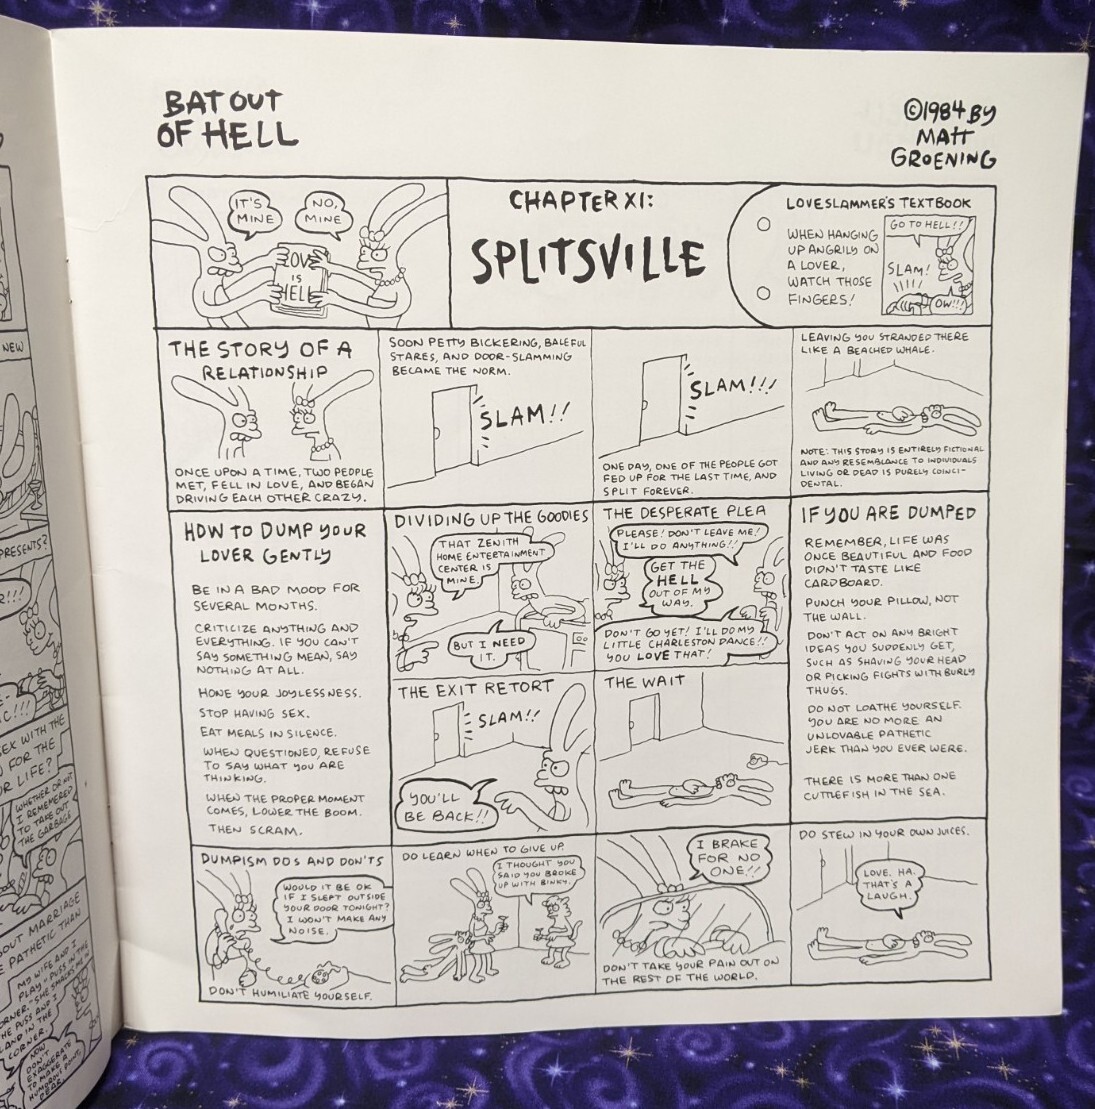 BAT OUT
OF HELL
©1984 BY
MATT
GROENING
IT'S
MINE
NO,
MINE
LOVE
IS
HELL
CHAPTER XI:
SPLITSVILLE
LOVESLAMMER'S TEXTBOOK
WHEN HANGING
UP ANGRILY ON
A LOVER,
WATCH THOSE
FINGERS!
GO TO HELL!!
SLAM!
OW!!!
THE STORY OF A
RELATIONSHIP
ONCE UPON A TIME, TWO PEOPLE
MET, FELL IN LOVE, AND BEGAN
DRIVING EACH OTHER CRAZY.
SOON PETTY BICKERING, BALEFUL
STARES, AND DOOR-SLAMMING
BECAME THE NORM.
SLAM!!
SLAM!!!
ONE DAY, ONE OF THE PEOPLE GOT
FED UP FOR THE LAST TIME, AND
SPLIT FOREVER.
LEAVING YOU STRANDED THERE
LIKE A BEACHED WHALE.
NOTE: THIS STORY IS ENTIRELY FICTIONAL
AND ANY RESEMBLANCE TO INDIVIDUALS
LIVING OR DEAD IS PURELY COINCI-
DENTAL.
HOW TO DUMP YOUR
LOVER GENTLY
BE IN A BAD MOOD FOR
SEVERAL MONTHS.
CRITICIZE ANYTHING AND
EVERYTHING. IF YOU CAN'T
SAY SOMETHING MEAN, SAY
NOTHING AT ALL.
HONE YOUR JOYLESSNESS.
STOP HAVING SEX.
EAT MEALS IN SILENCE.
WHEN QUESTIONED, REFUSE
TO SAY WHAT YOU ARE
THINKING.
WHEN THE PROPER MOMENT
COMES, LOWER THE BOOM.
THEN SCRAM.
DIVIDING UP THE GOODIES
THAT ZENITH
HOME ENTERTAINMENT
CENTER IS
MINE.
BUT I NEED
IT.
THE DESPERATE PLEA
PLEASE! DON'T LEAVE ME!
I'LL DO ANYTHING!!
GET THE
HELL
OUT OF MY
WAY.
DON'T GO YET! I'LL DO MY
LITTLE CHARLESTON DANCE!!
YOU LOVE THAT!
THE EXIT RETORT
SLAM!!
YOU'LL
BE BACK!!
THE WAIT
IF YOU ARE DUMPED
REMEMBER, LIFE WAS
ONCE BEAUTIFUL AND FOOD
DIDN'T TASTE LIKE
CARDBOARD.
PUNCH YOUR PILLOW, NOT
THE WALL.
DON'T ACT ON ANY BRIGHT
IDEAS YOU SUDDENLY GET,
SUCH AS SHAVING YOUR HEAD
OR PICKING FIGHTS WITH BURLY
THUGS.
DO NOT LOATHE YOURSELF.
YOU ARE NO MORE AN
UNLOVABLE PATHETIC
JERK THAN YOU EVER WERE.
THERE IS MORE THAN ONE
CUTTLEFISH IN THE SEA.
DUMPISM DOS AND DON'TS
WOULD IT BE OK
IF I SLEPT OUTSIDE
YOUR DOOR TONIGHT?
I WON'T MAKE ANY
NOISE.
DON'T HUMILIATE YOURSELF.
DO LEARN WHEN TO GIVE UP.
I THOUGHT YOU
SAID YOU BROKE
UP WITH BINKY.
I BRAKE
FOR NO
ONE!!
DON'T TAKE YOUR PAIN OUT ON
THE REST OF THE WORLD.
DO STEW IN YOUR OWN JUICES.
LOVE. HA.
THAT'S A
LAUGH.
NEW
PRESENTS?
SEX WITH THE
FOR THE
LIFE?
WHETHER OR NOT
I REMEMBERED
TO TAKE OUT
THE GARBAGE
ABOUT MARRIAGE
PATHETIC THAN
MY WIFE AND I
PLAY "PUSS IN THE
CORNER." SHE SMACKS ME IN
THE PUSS AND I
LAND IN THE
CORNER.
NOW
DON'T
EXAGGERATE
TO MAKE A
HUMOROUS POINT,
DEAR.